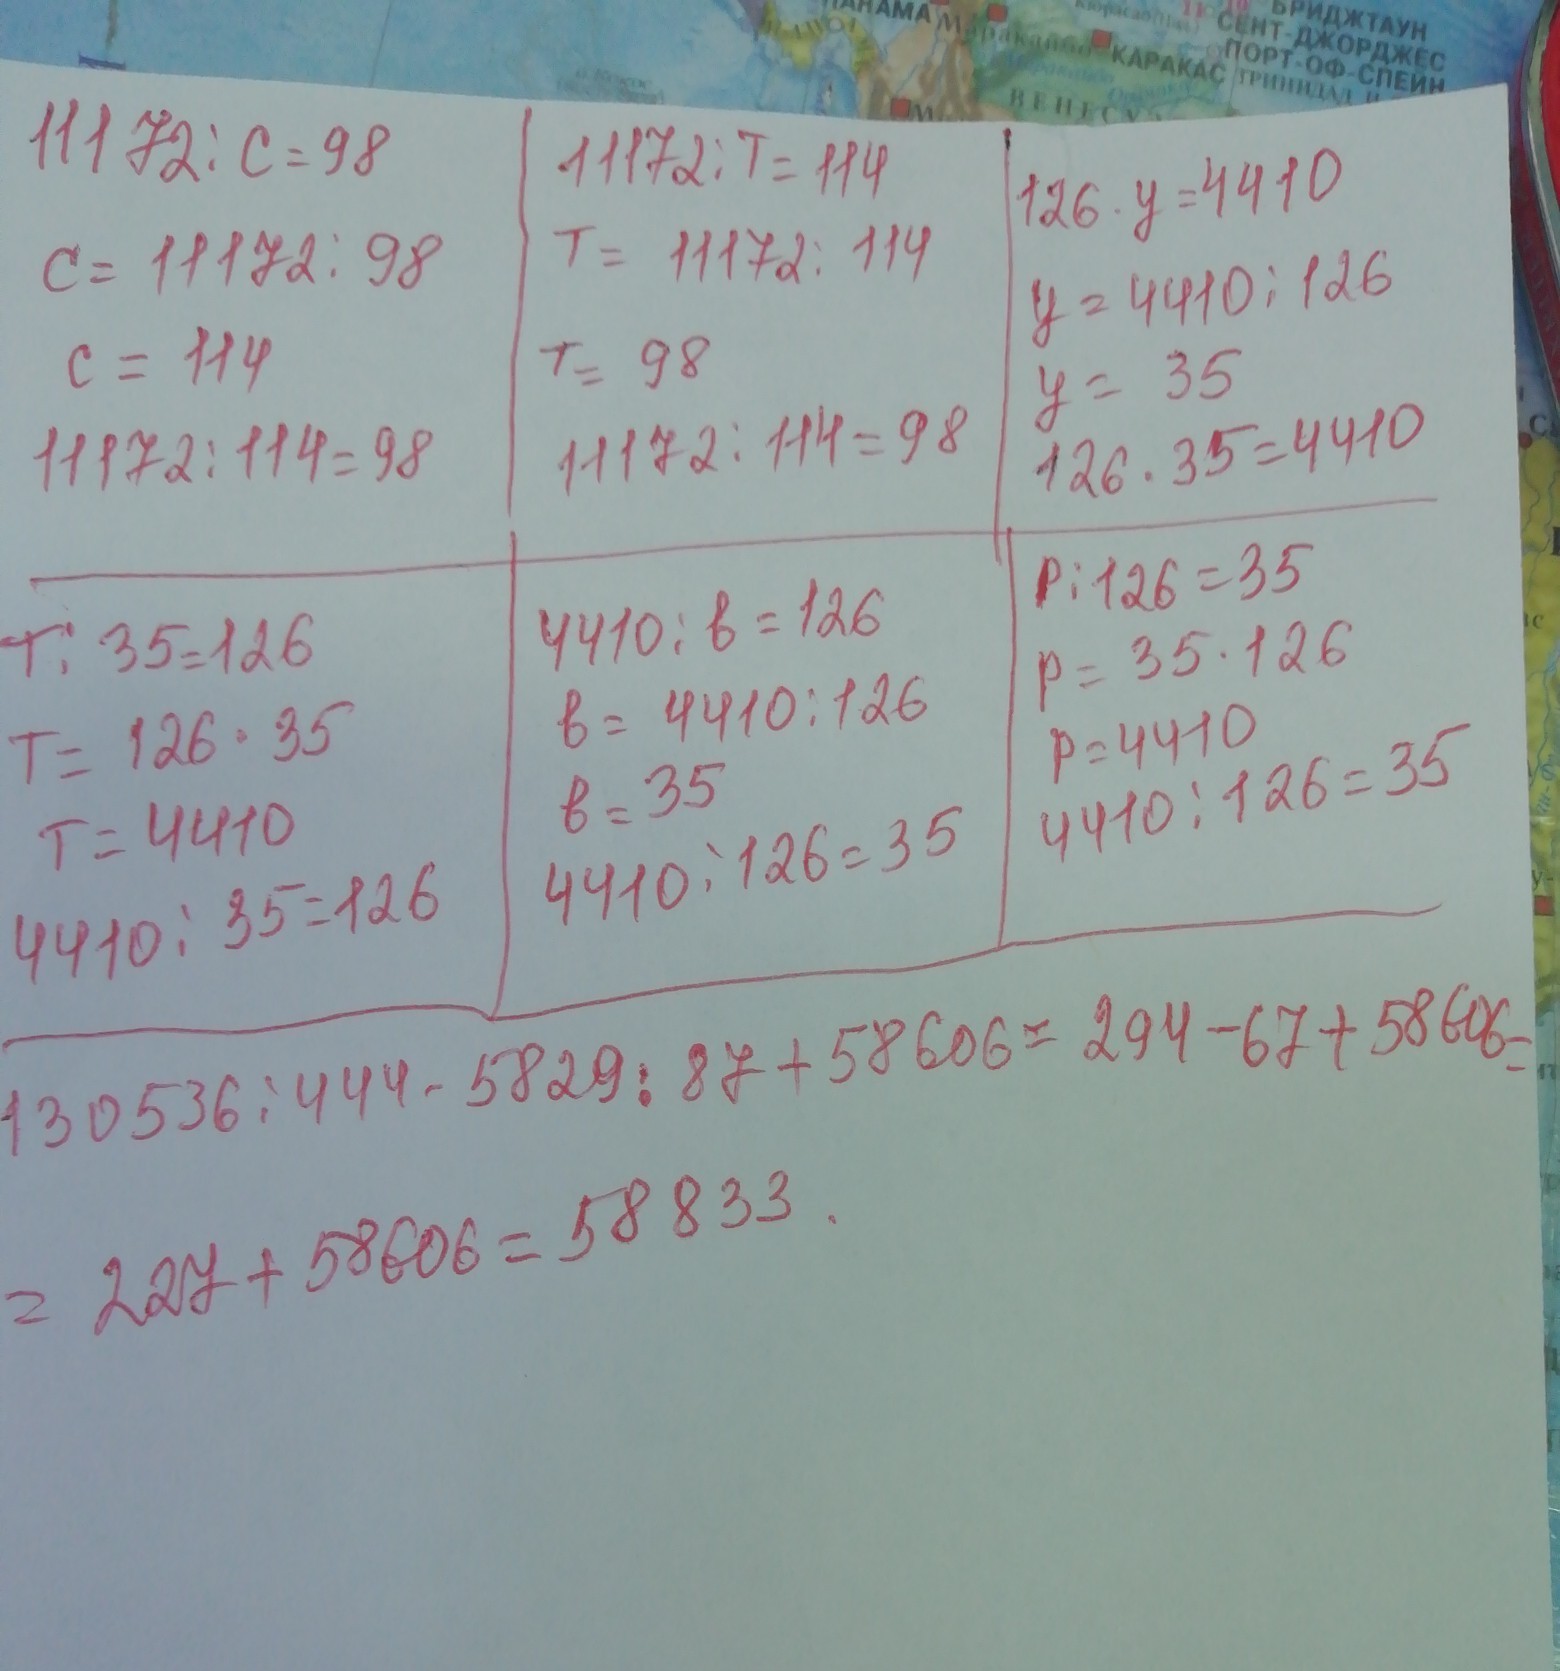 ПАНАМА
БРИДЖТАУН
СЕНТ-ДЖОРДЖЕС
ПОРТ-ОФ-СПЕЙН
Маракайбо
КАРАКАС
ТРИНИДАД И
ВЕНЕСУ
11172:C=98
C=11172:98
C=114
11172:114=98
11172:T=114
T=11172:114
T=98
11172:114=98
126·y=4410
y=4410:126
y=35
126·35=4410
T:35=126
T=126·35
T=4410
4410:35=126
4410:в=126
в=4410:126
в=35
4410:126=35
P:126=35
p=35·126
p=4410
4410:126=35
130536:444-5829:87+58606=294-67+58606=
=227+58606=58833.